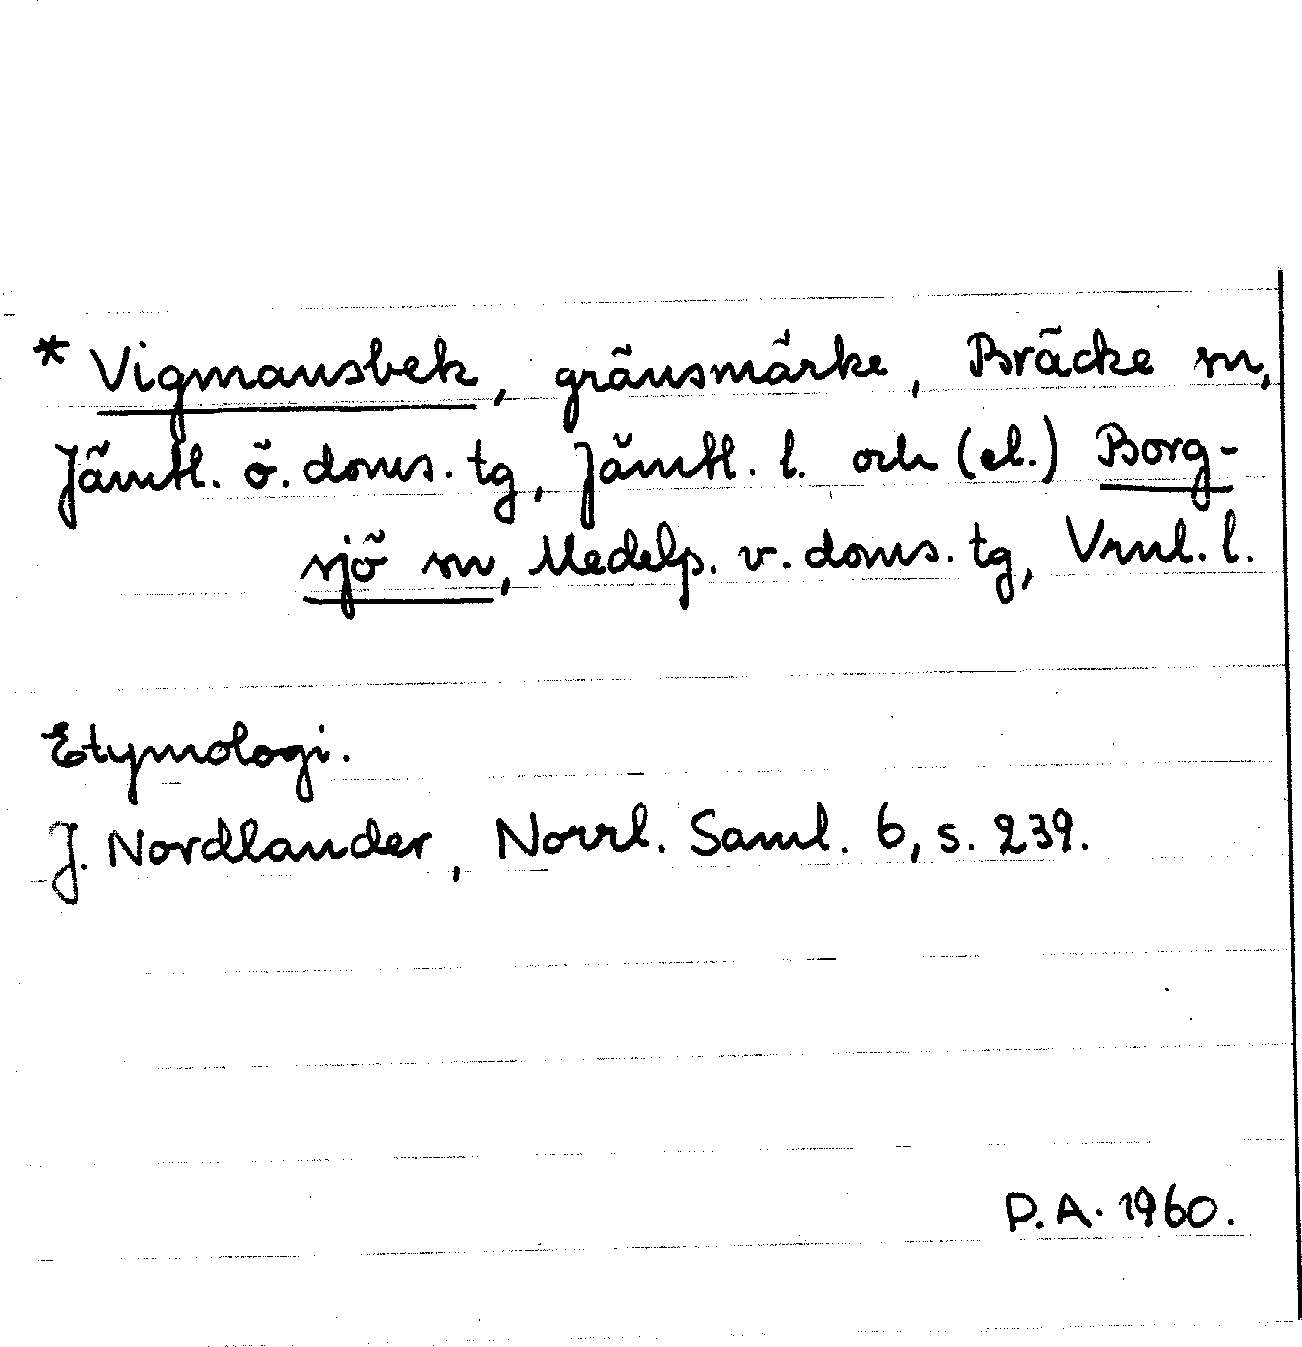 * Vigmansbek, gränsmärke, Bräcke sn,
Jämtl. ö. doms. tg, Jämtl. l. och (el.) Borg-
sjö sn, Medelp. v. doms. tg, Vrnl. l.
Etymologi.
J. Nordlander, Norrl. Saml. 6, s. 239.
P.A. 1960.